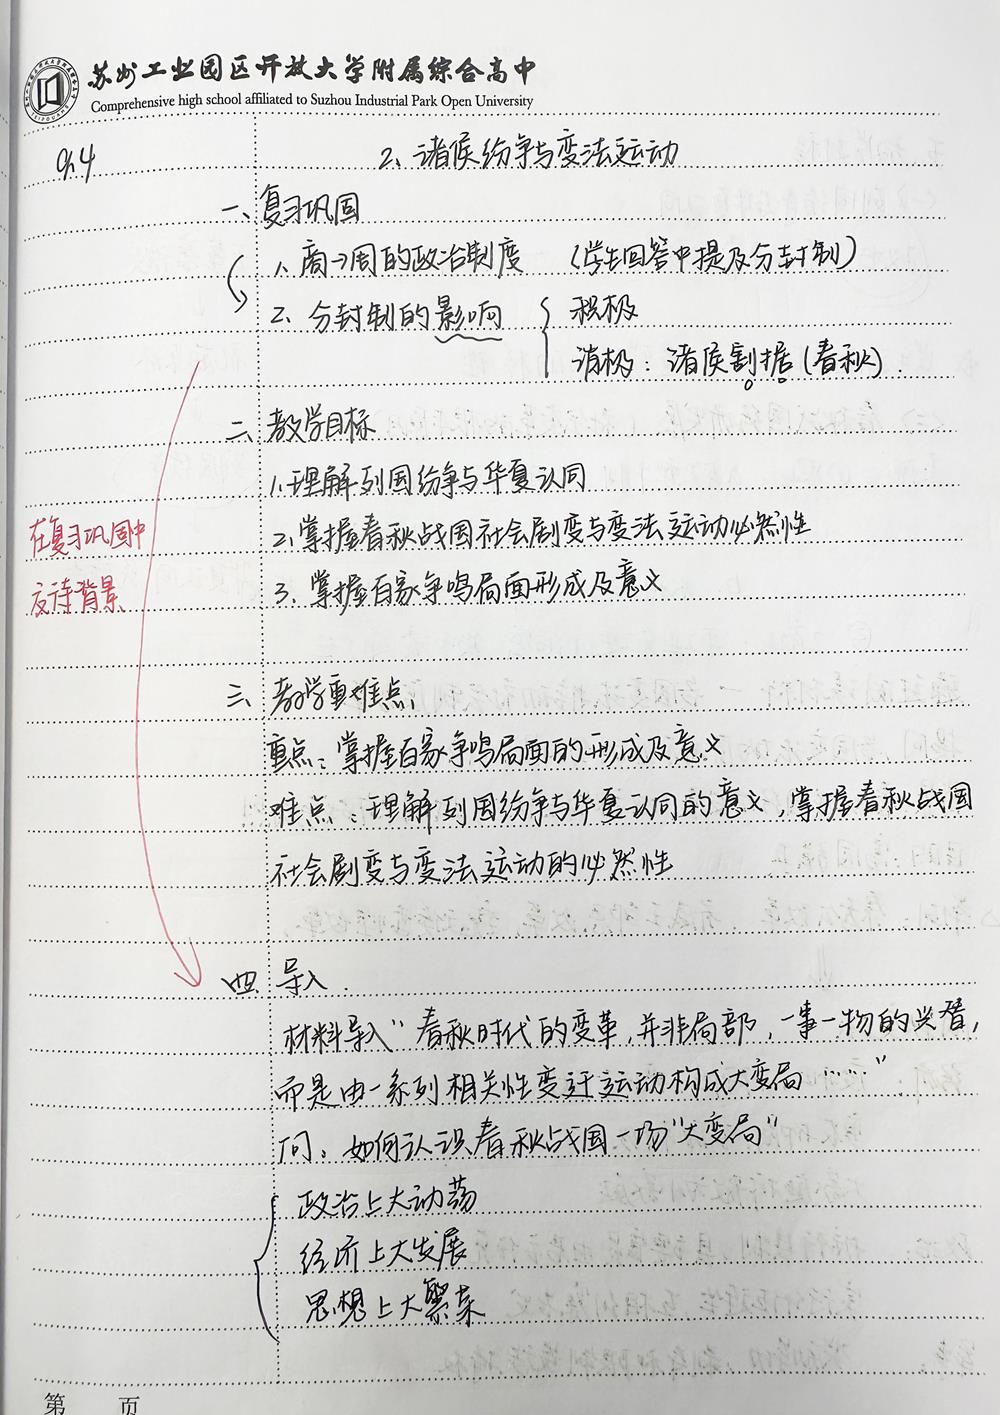 苏州工业园区开放大学附属综合高中
Comprehensive high school affiliated to Suzhou Industrial Park Open University
9.4
2、诸侯纷争与变法运动
一、复习巩固
1、商→周的政治制度 (学生回答中提及分封制)
2、分封制的影响 积极
消极：诸侯割据(春秋).
二、教学目标
1.理解列国纷争与华夏认同
2.掌握春秋战国社会剧变与变法运动必然性
3、掌握百家争鸣局面形成及意义
在复习巩固中
交待背景
三、教学重难点
重点：掌握百家争鸣局面的形成及意义
难点：理解列国纷争与华夏认同的意义,掌握春秋战国
社会剧变与变法运动的必然性
四、导入.
材料导入"春秋时代的变革,并非局部,一事一物的兴替,
而是由一系列相关性变迁运动构成大变局……"
问：如何认识春秋战国一场"大变局"
政治上大动荡
经济上大发展
思想上大繁荣
第 页